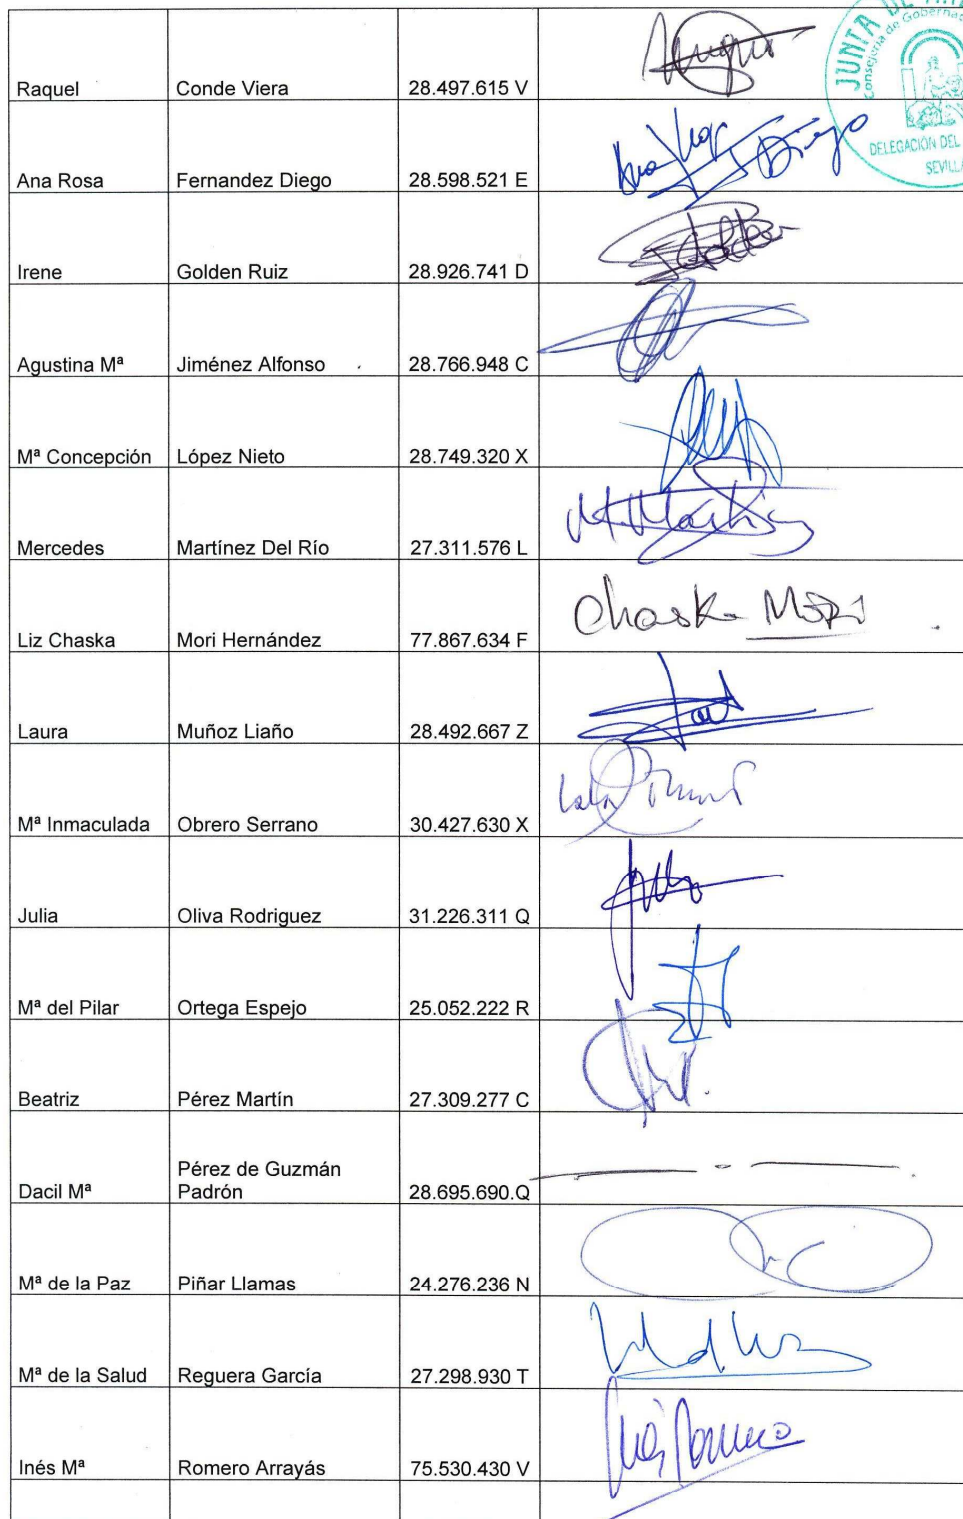 JUNTA DE
Consejería de Gobernac
DELEGACIÓN DEL
SEVILLA
Raquel Conde Viera 28.497.615 V
Ana Rosa Fernandez Diego 28.598.521 E
Irene Golden Ruiz 28.926.741 D
Agustina Mª Jiménez Alfonso 28.766.948 C
Mª Concepción López Nieto 28.749.320 X
Mercedes Martínez Del Río 27.311.576 L
Liz Chaska Mori Hernández 77.867.634 F Chaska Mori
Laura Muñoz Liaño 28.492.667 Z
Mª Inmaculada Obrero Serrano 30.427.630 X
Julia Oliva Rodriguez 31.226.311 Q
Mª del Pilar Ortega Espejo 25.052.222 R
Beatriz Pérez Martín 27.309.277 C
Pérez de Guzmán
Dacil Mª Padrón 28.695.690.Q
Mª de la Paz Piñar Llamas 24.276.236 N
Mª de la Salud Reguera García 27.298.930 T
Inés Mª Romero Arrayás 75.530.430 V Inés Romero